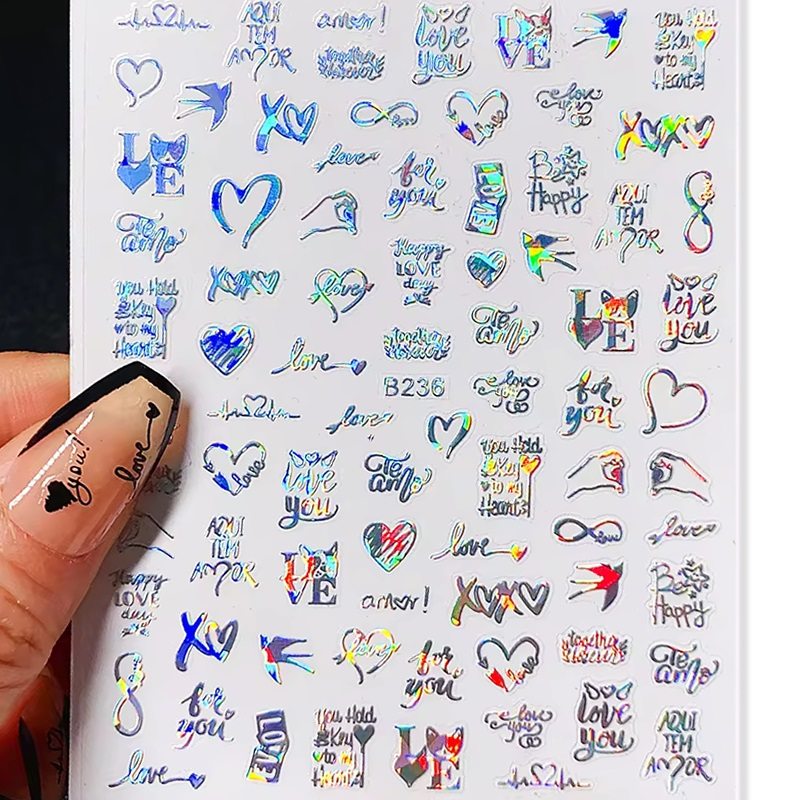 AQUI
TEM
AMOR
amor!
together
forever
love
you
LOVE
You Hold
the Key
to my
Heart
XO
Love
love
love
you
XOXO
LOVE
love
for
you
LOVE
Be
Happy
AQUI
TEM
AMOR
Te
amo
Happy
LOVE
day
You Hold
the Key
to my
Heart
XOXO
love
Te
amo
LOVE
love
you
love
together
forever
B236
love
you
for
you
love
you!
love
love
love
you
Te
amo
You Hold
the Key
to my
Heart
AQUI
TEM
AMOR
LOVE
love
love
love
Happy
LOVE
day
amor!
XOXO
Be
Happy
XO
love
for
you
love
together
forever
Te
amo
for
you
LOVE
You Hold
the Key
to my
Heart
LOVE
love
you
love
you
AQUI
TEM
AMOR
love